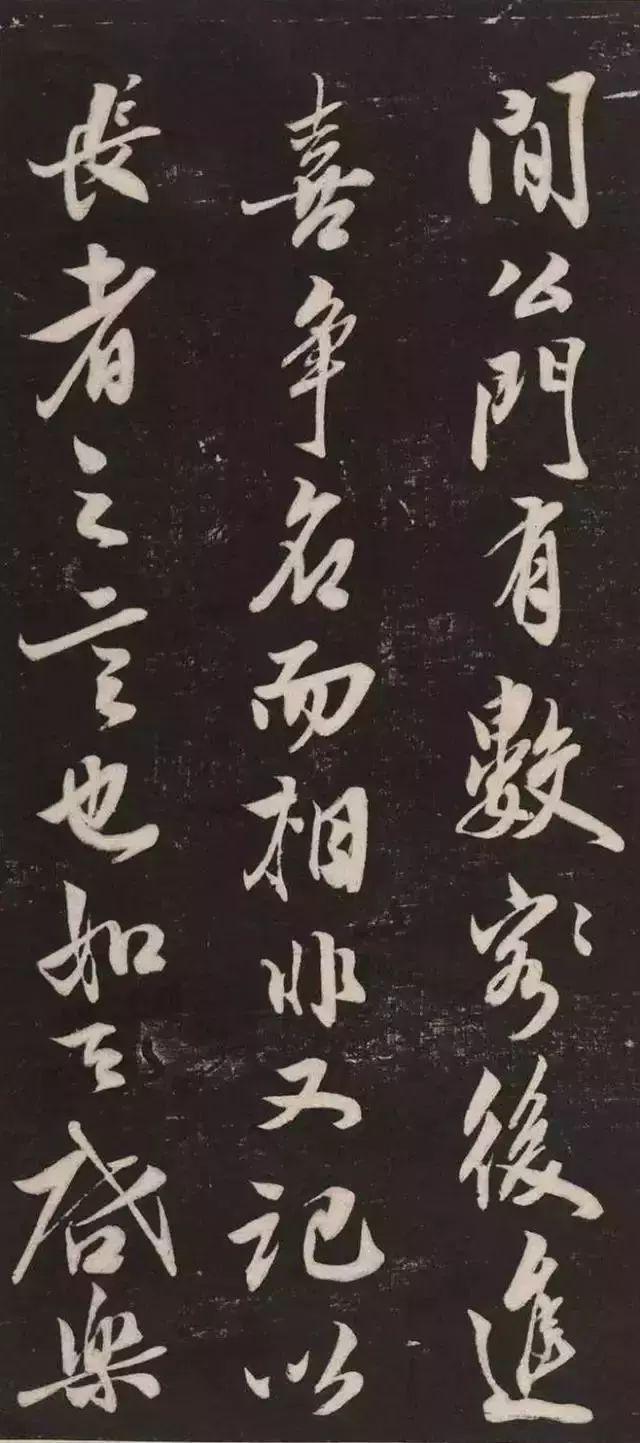 間公門有數客後進
喜争名而相非又記以
長者之言也如啓樂